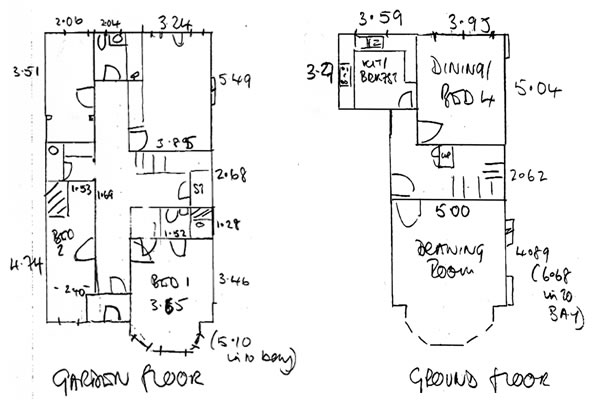 2.06
2.04
3.24
3.51
5.49
3.85
2.68
ST
1.53
1.69
1.52
1.28
BED
2
4.74
2.40
BED 1
3.65
3.46
(5.10
into bay)
GARDEN FLOOR
3.59
3.95
3.29
KIT/
BRKFST
DINING/
BED 4
5.04
2.62
5.00
DRAWING
ROOM
4.089
(6.68
into
BAY)
GROUND FLOOR